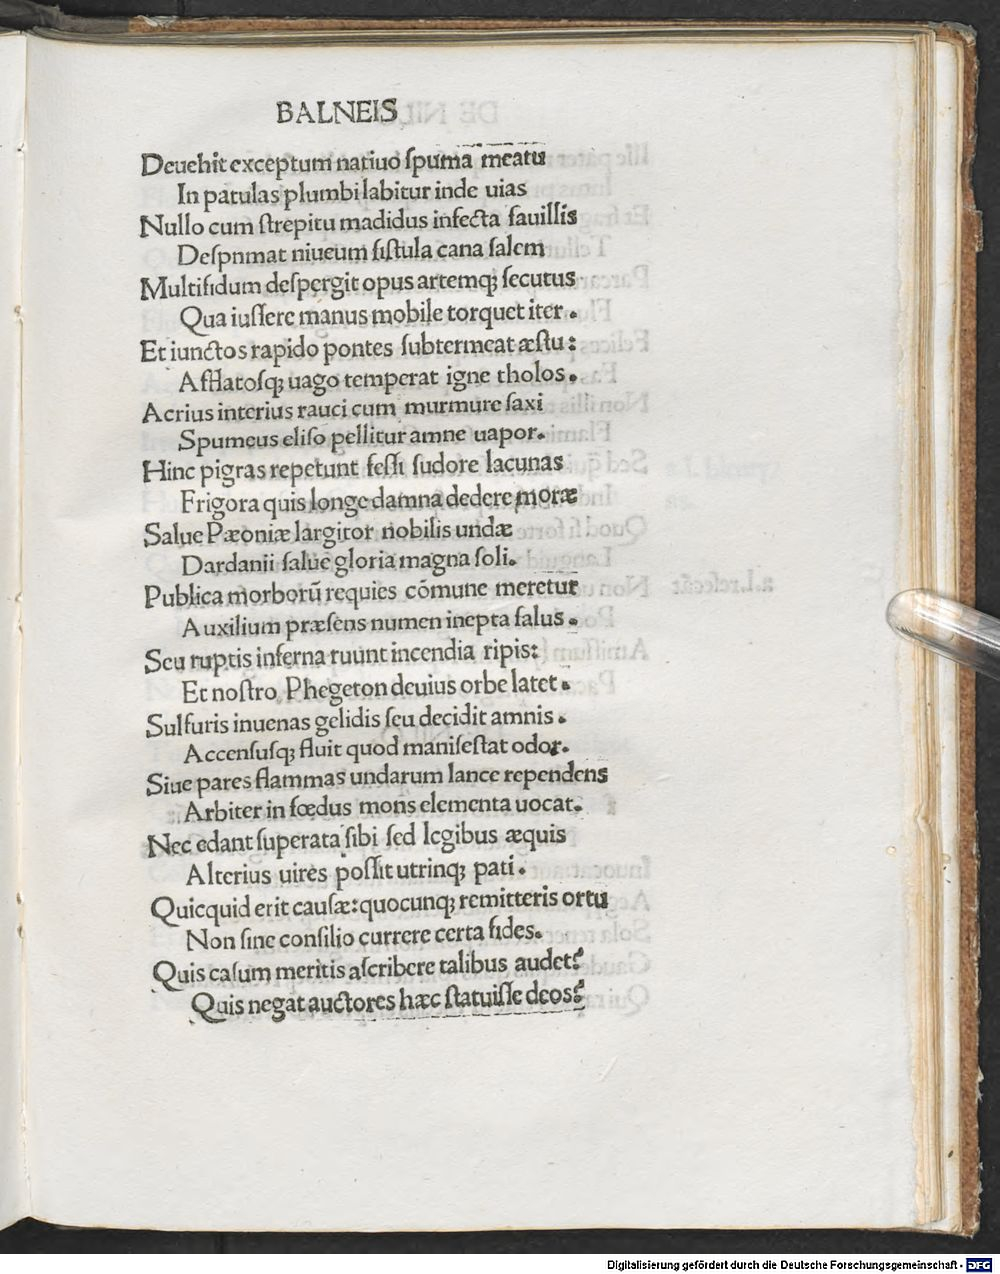 BALNEIS
Deuehit exceptum natiuo ſpuma meatu
In patulas plumbi labitur inde uias
Nullo cum ſtrepitu madidus infecta fauillis
Deſpnmat niueum fiſtula cana ſalem
Multifidum deſpergit opus artemq; ſecutus
Qua iuſſere manus mobile torquet iter .
Et iunctos rapido pontes ſubtermeat æſtu :
Afflatoſq; uago temperat igne tholos .
Acrius interius rauci cum murmure ſaxi
Spumeus eliſo pellitur amne uapor.
Hinc pigras repetunt feſſi ſudore lacunas
Frigora quis longe damna dedere moræ
Salue Pæoniæ largitor nobilis undæ
Dardanii ſalue gloria magna ſoli.
Publica morborũ requies cõmune meretur
Auxilium præſens numen inepta ſalus .
Seu ruptis inferna ruunt incendia ripis:
Et noſtro Phegeton deuius orbe latet .
Sulfuris inuenas gelidis ſeu decidit amnis .
Accenſuſq; fluit quod manifeſtat odor.
Siue pares flammas undarum lance rependens
Arbiter in fœdus mons elementa uocat.
Nec cedant ſuperata ſibi ſed legibus æquis
Alterius uires poſſit utrinq; pati .
Quicquid erit cauſæ: quocunq; remitteris ortu
Non ſine conſilio currere certa fides.
Quis caſum meritis aſcribere talibus audet?
Quis negat auctores hæc ſtatuiſſe deos?
Digitalisierung gefördert durch die Deutsche Forschungsgemeinschaft - DFG